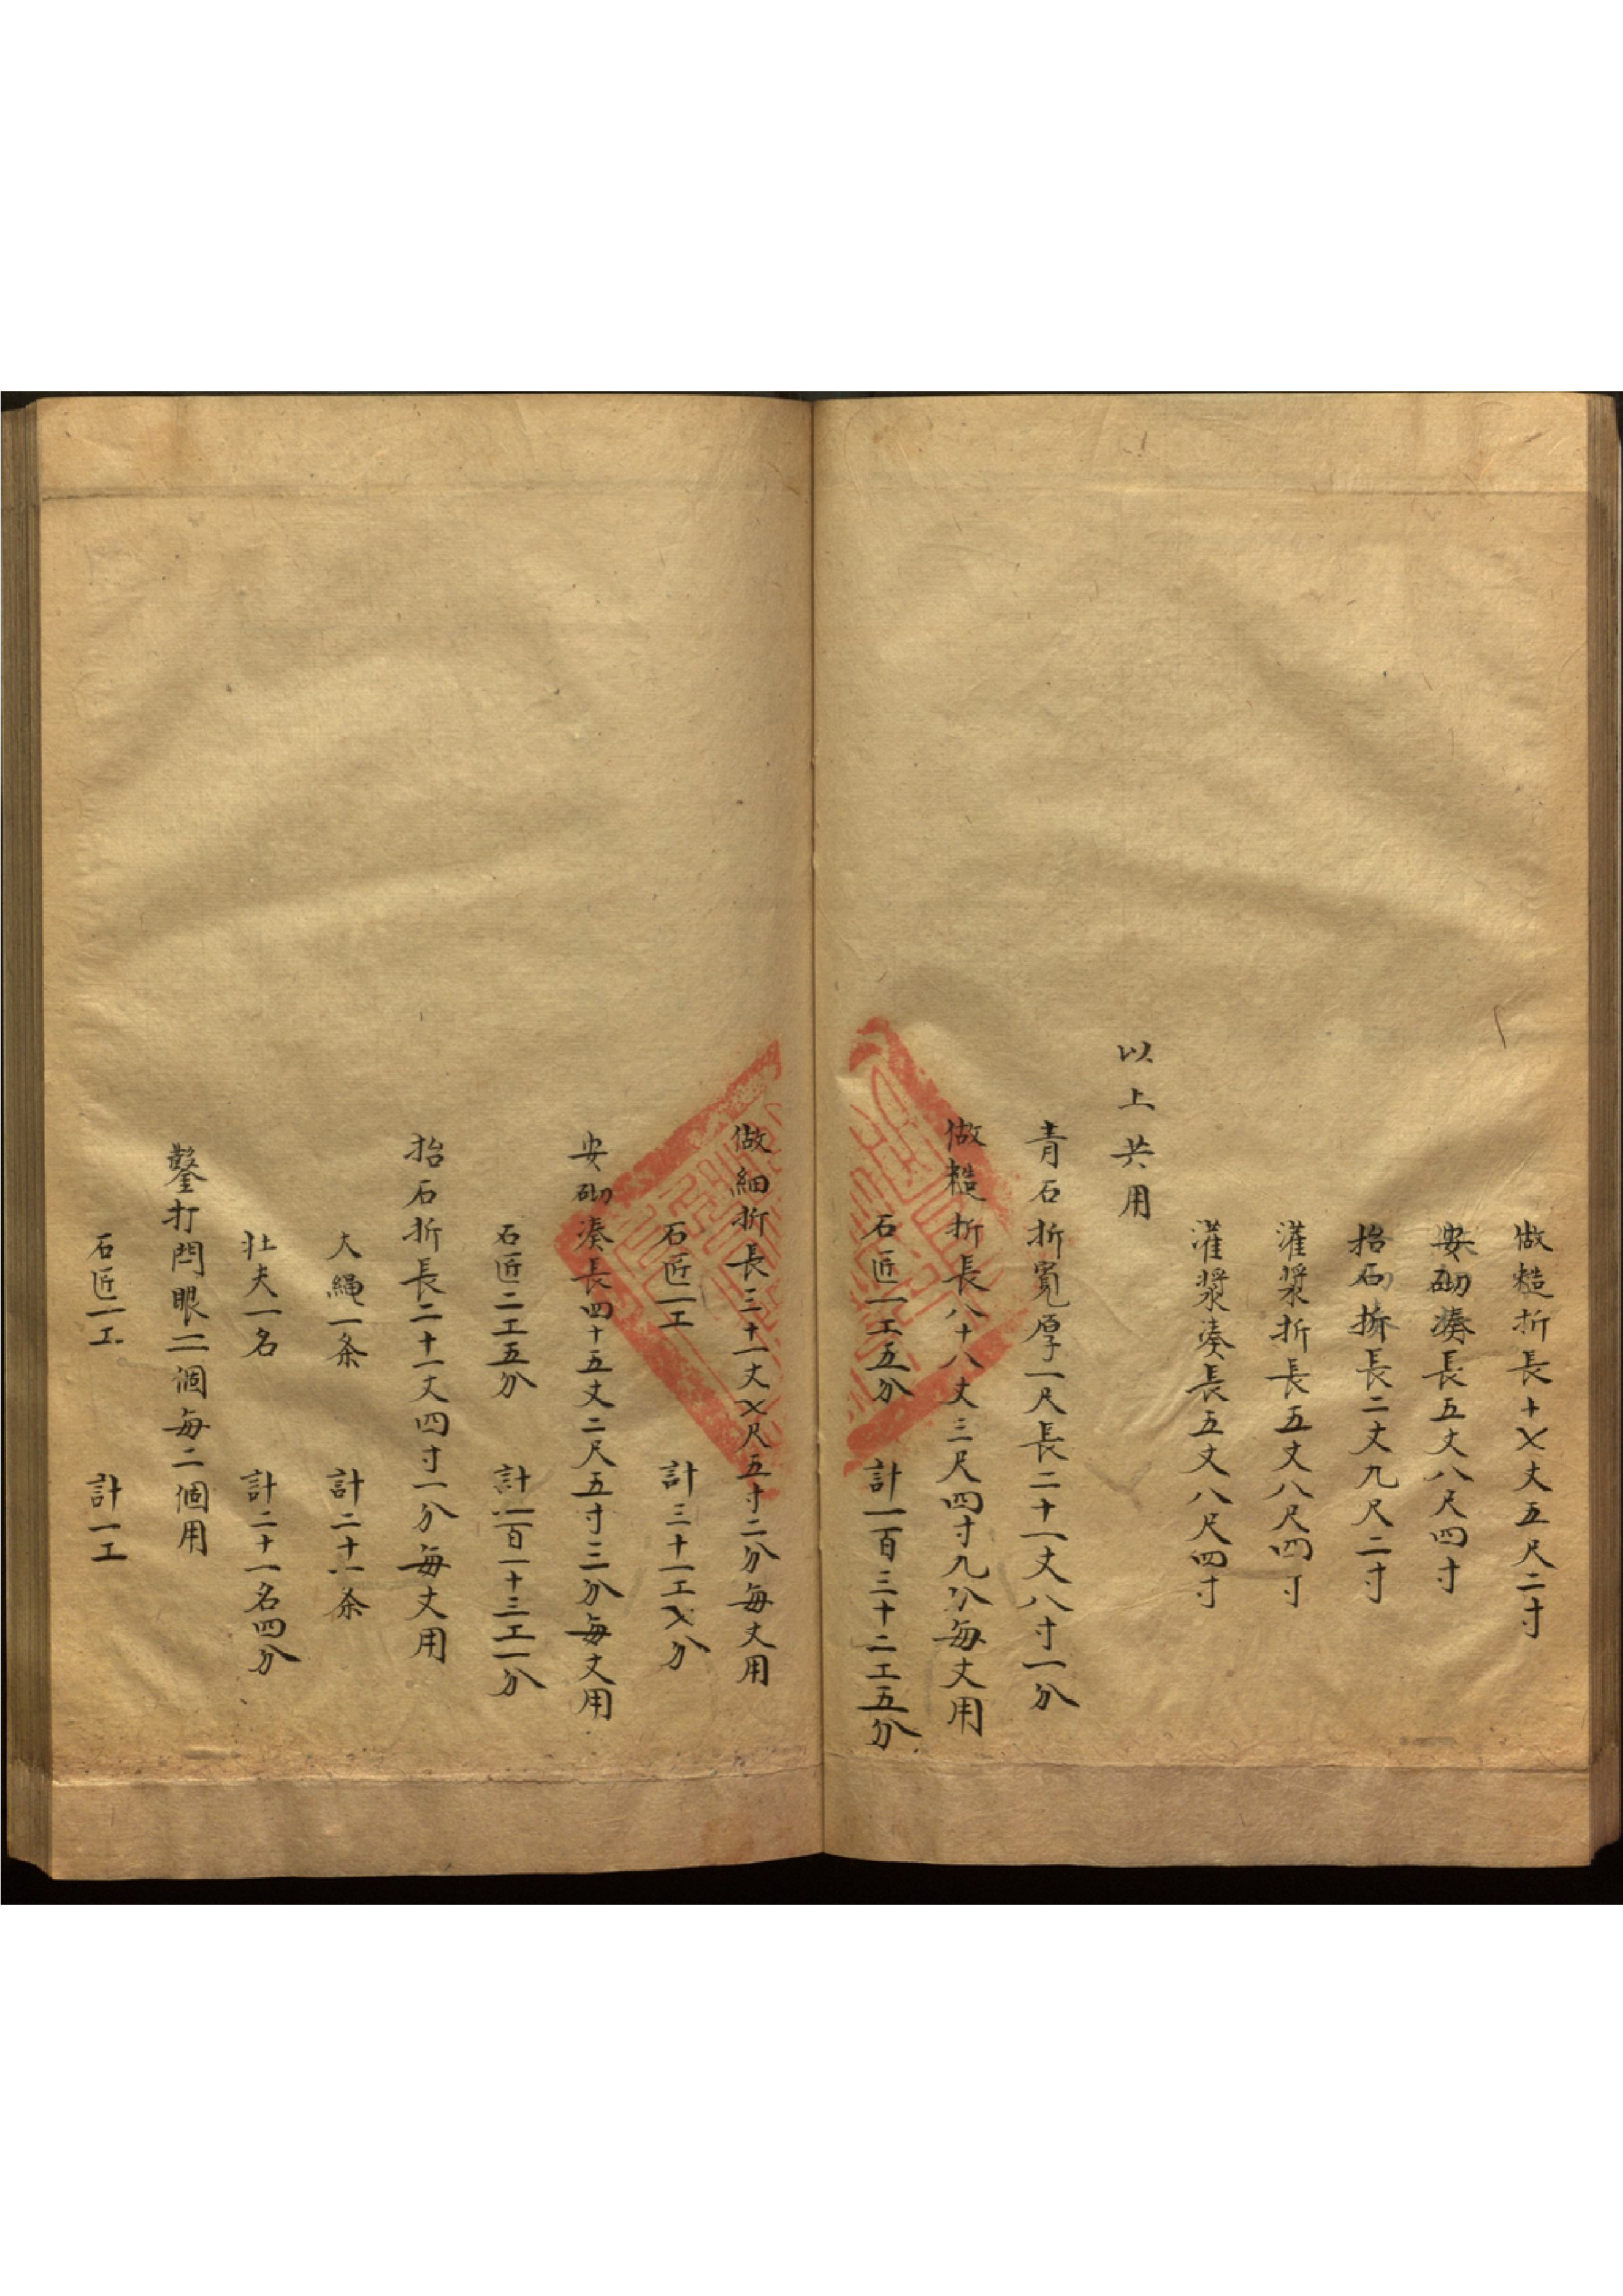 做糙折長十〤丈五尺二寸
安砌湊長五丈八尺四寸
抬石折長二丈九尺二寸
灌漿折長五丈八尺四寸
灌漿湊長五丈八尺四寸
以上共用
青石折寬厚一尺長二十一丈八寸一分
做糙折長八十八丈三尺四寸九分每丈用
石匠一工五分 計一百三十二工五分
做細折長三十一丈〤尺五寸二分每丈用
石匠一工 計三十一工〤分
安砌湊長四十五丈二尺五寸三分每丈用
石匠二工五分 計一百一十三工一分
抬石折長二十一丈四寸一分每丈用
大繩一条 計二十一条
壯夫一名 計二十一名四分
鑿打閂眼二個每二個用
石匠一工 計一工